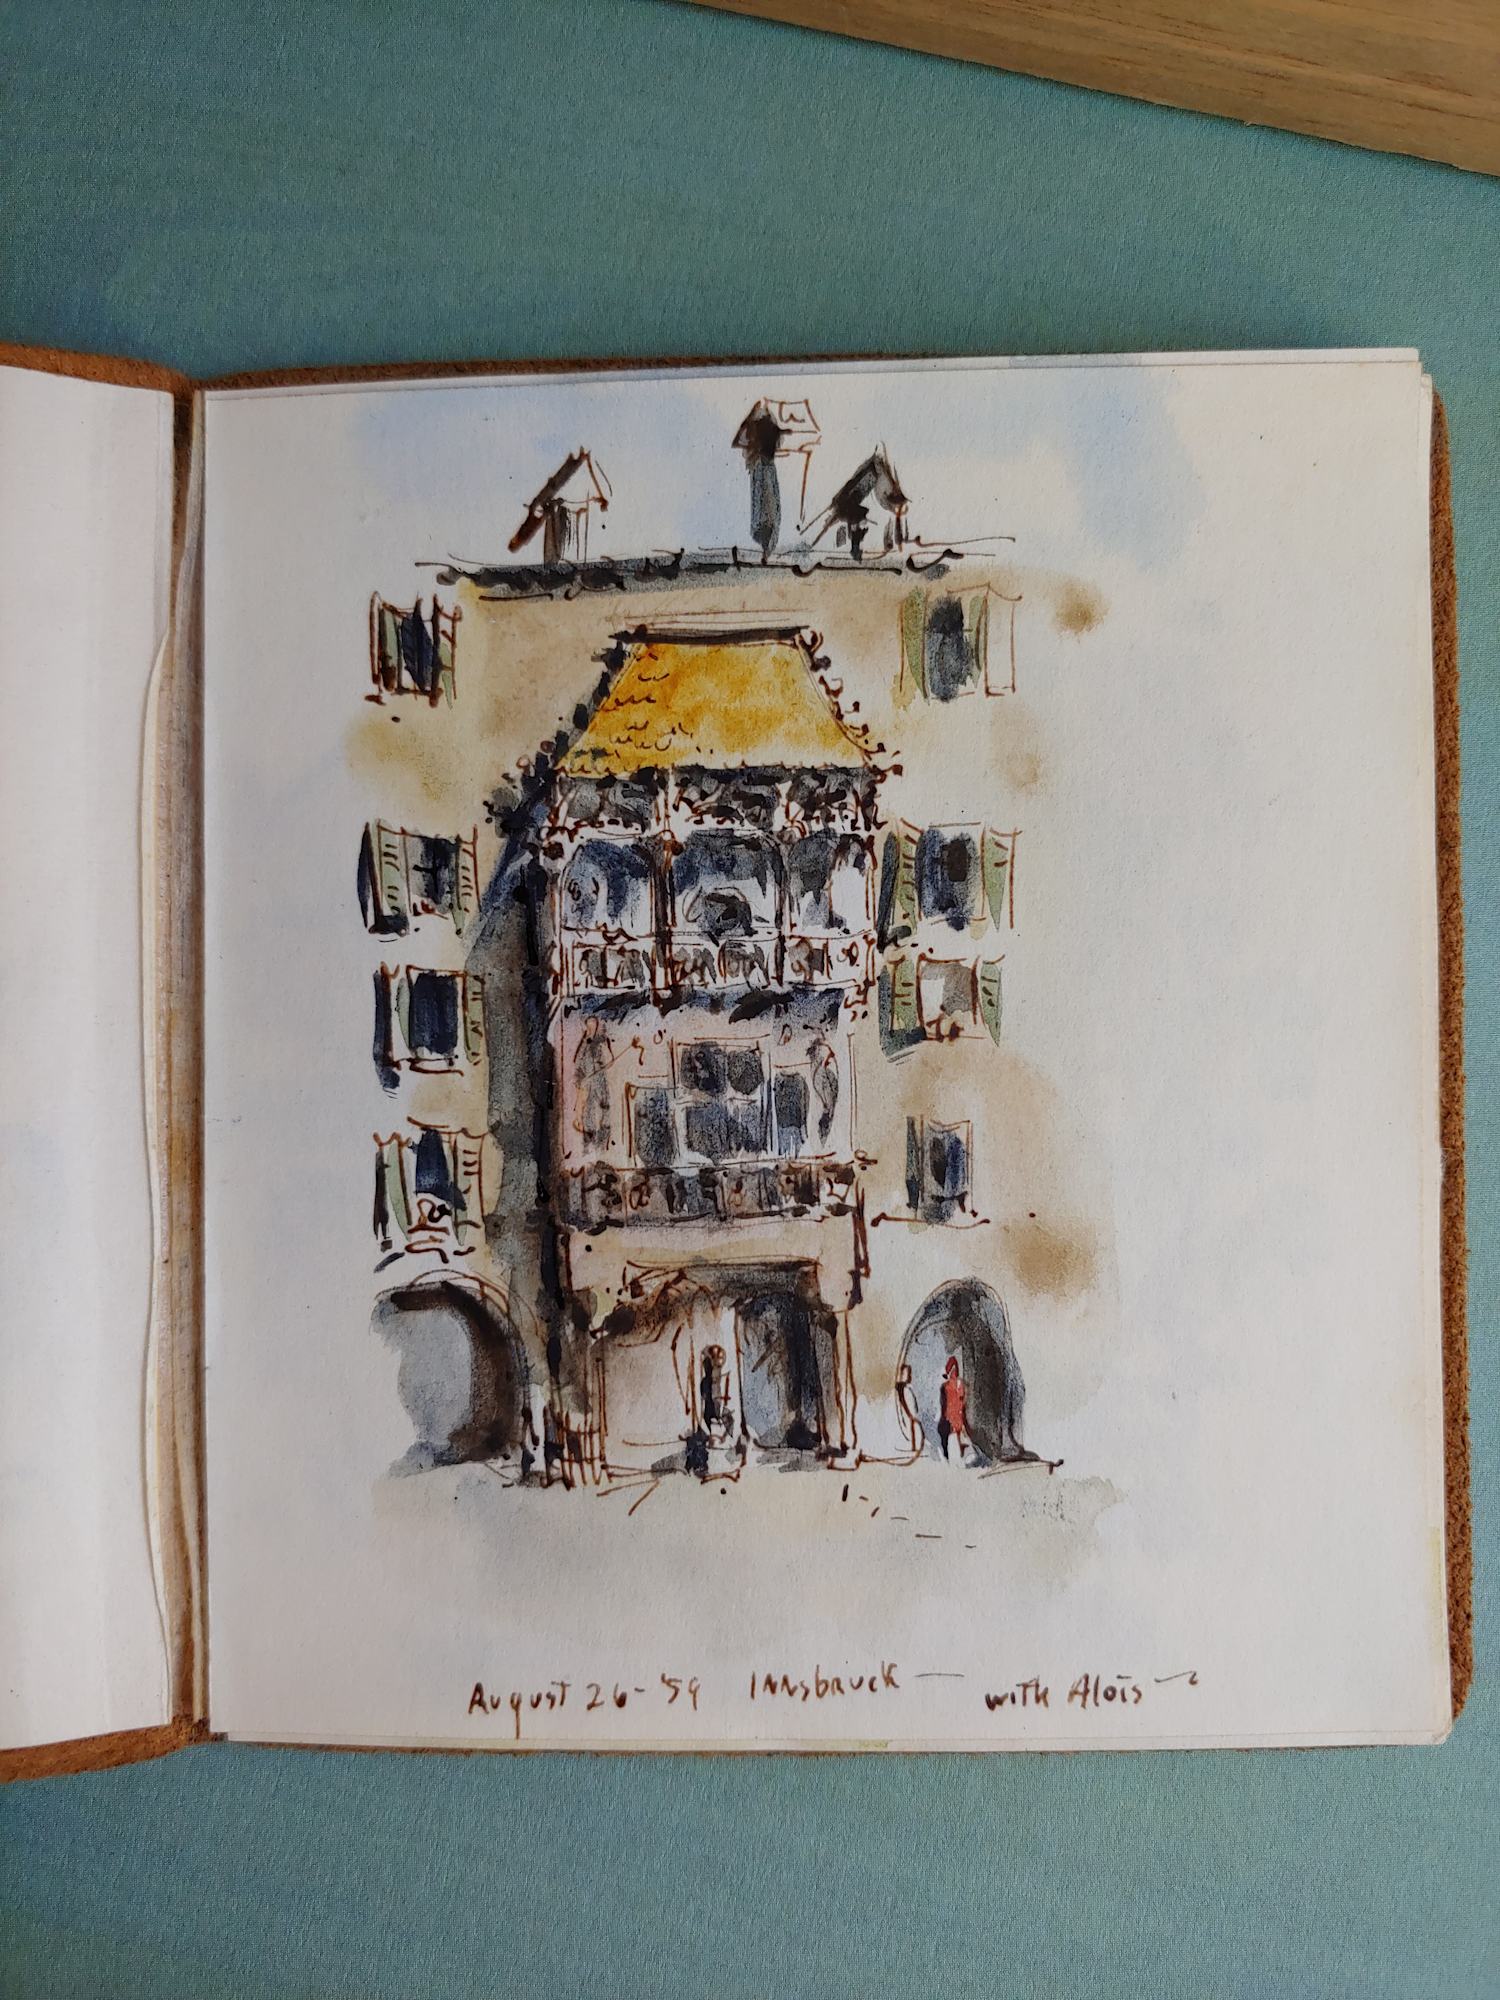 August 26-'59 Innsbruck — with Alois —